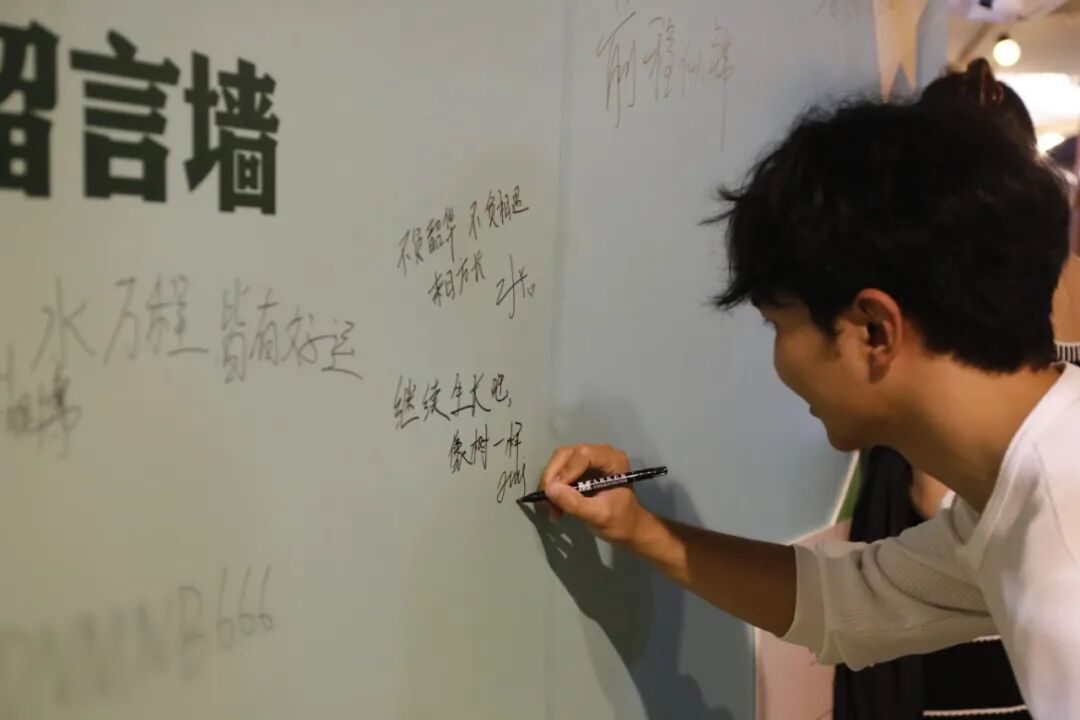 留言墙
前程似锦
不负韶华 不负相遇
相方长
水万程皆有好运
继续生长吧,
像树一样
NB666
MARKER